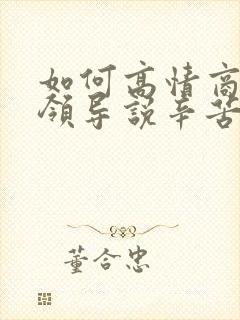 如何高情商
领导说辛苦
董合忠